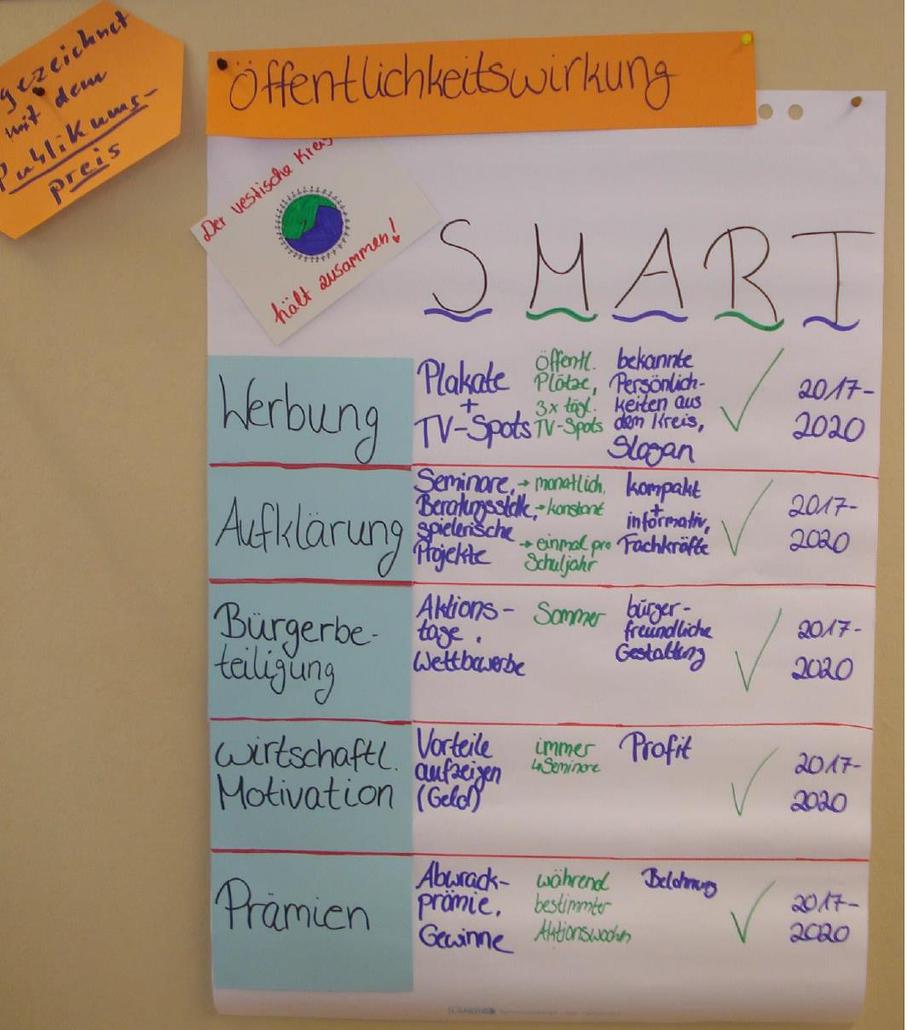 gezeichnet
mit dem
Publikums-
preis
Öffentlichkeitswirkung
Der vestische Kreis
hält zusammen!
S M A R T
Werbung
Plakate
+
TV-Spots
Öffentl.
Plätze,
3x tägl.
TV-Spots
bekannte
Persönlich-
keiten aus
dem Kreis,
Slogan
✓
2017-
2020
Aufklärung
Seminare,
Beratungsstelle,
spielerische
Projekte
→ monatlich,
→ konstant
→ einmal pro
Schuljahr
kompakt
+
informativ,
Fachkräfte
✓
2017-
2020
Bürgerbe-
teiligung
Aktions-
tage,
Wettbewerbe
Sommer
bürger-
freundliche
Gestaltung
✓
2017-
2020
wirtschaftl.
Motivation
Vorteile
aufzeigen
(Geld)
immer
↳ Seminare
Profit
✓
2017-
2020
Prämien
Abwrack-
prämie,
Gewinne
während
bestimmter
Aktionswochen
Belohnung
✓
2017-
2020